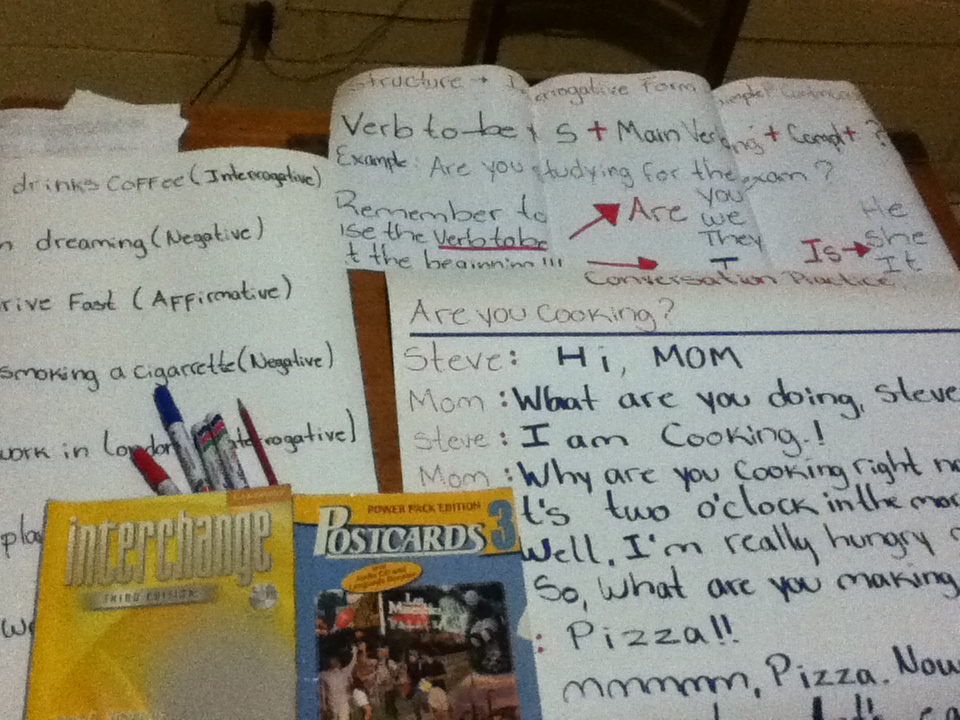 drinks Coffee (Interrogative)
dreaming (Negative)
rive Fast (Affirmative)
smoking a cigarrette (Negative)
work in London
Structure → Form
Verb to be + S + Main Verb ing + Compl + ?
Example: Are you studying for the exam?
Remember to
use the Verb to be
t the beginnin!!!
Are
you
we
They
I
Is
He
she
It
Conversation Practice
Are you Cooking?
Steve: Hi, MOM
Mom: What are you doing, Steve
Steve: I am Cooking.!
Mom: Why are you Cooking right
t's two o'clock in the
Well, I'm really hungry
So, What are you making
: Pizza!!
mmmmm, Pizza. Now
interchange
THIRD EDITION
POWER PACK EDITION
POSTCARDS 3